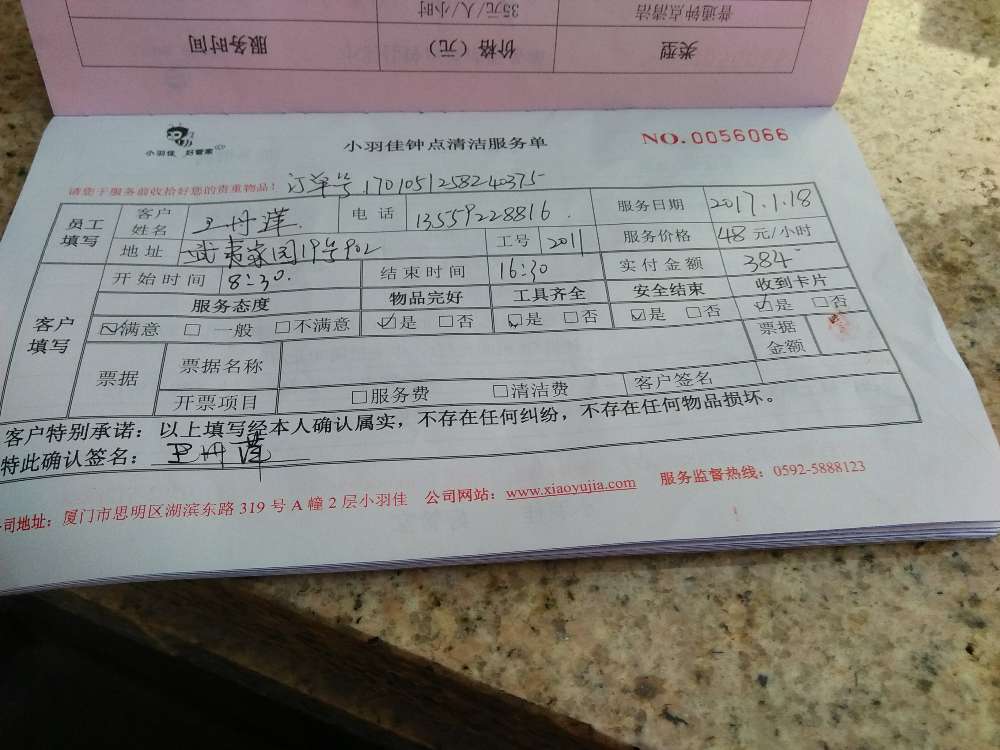 普通钟点清洁 35元/人/小时
类型 价格（元） 服务时间
小羽佳 好管家
小羽佳钟点清洁服务单
NO.0056066
请您于服务前收拾好您的贵重物品！ 订单号 1701051258240375
员工填写 客户姓名 王丹萍 电话 13559228816 服务日期 2017.1.18
地址 武夷家园19号902 工号 2011 服务价格 48元/小时
客户填写 开始时间 8:30 结束时间 16:30 实付金额 384
服务态度 物品完好 工具齐全 安全结束 收到卡片
☑满意 □一般 □不满意 ☑是 □否 ☑是 □否 ☑是 □否 ☑是 □否
票据 票据名称 票据金额
开票项目 □服务费 □清洁费 客户签名
客户特别承诺：以上填写经本人确认属实，不存在任何纠纷，不存在任何物品损坏。
特此确认签名：王丹萍
司地址：厦门市思明区湖滨东路319号A幢2层小羽佳 公司网站：www.xiaoyujia.com 服务监督热线：0592-5888123